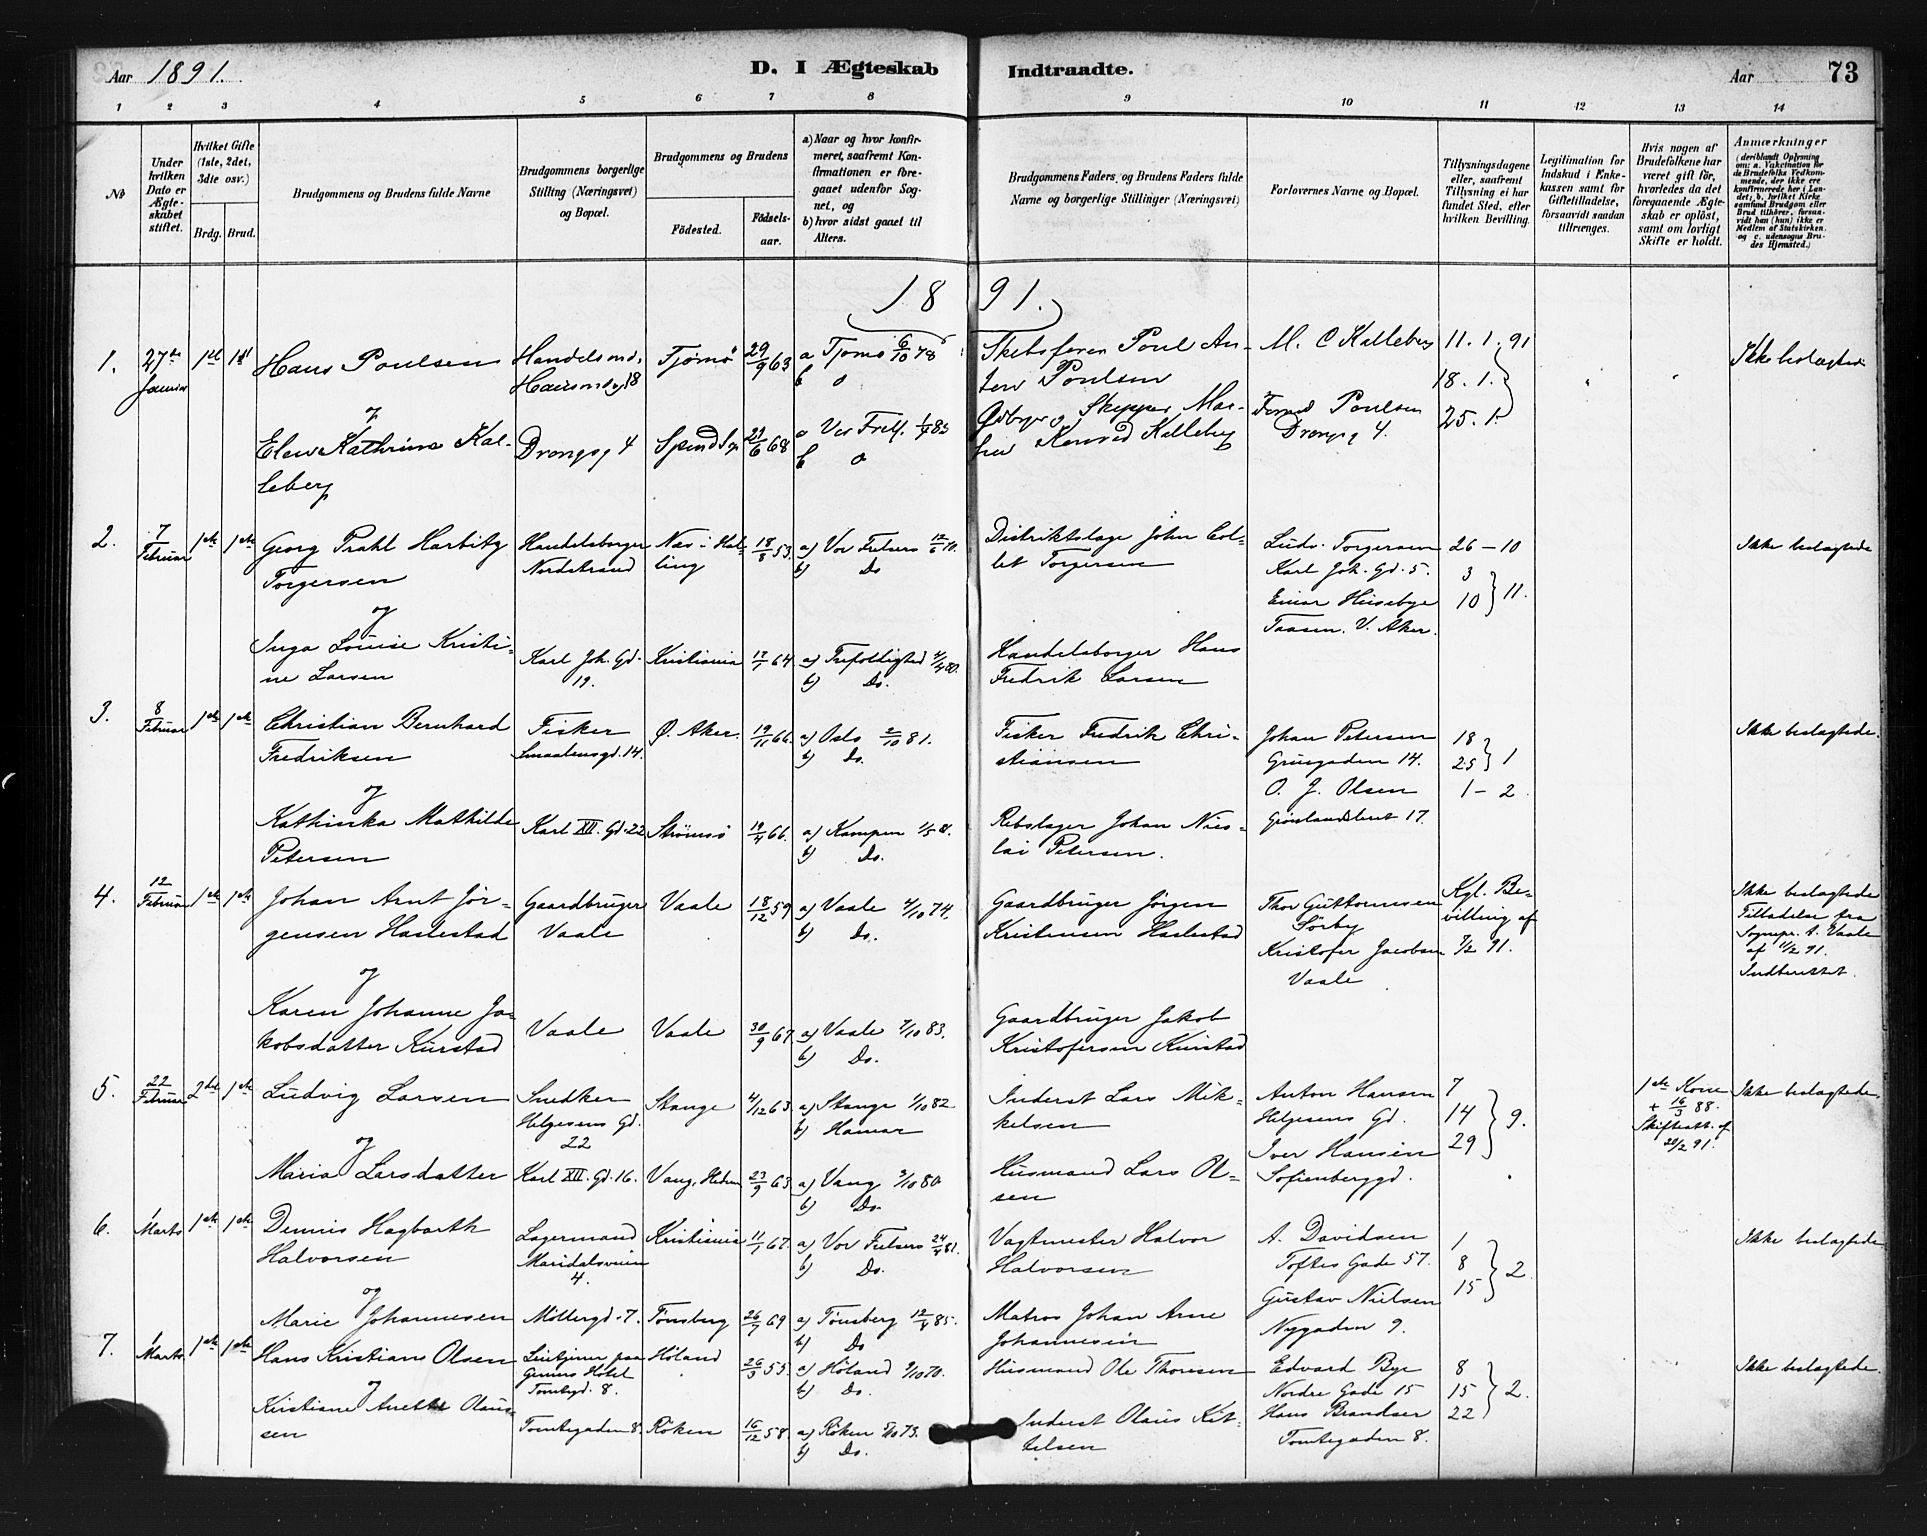 Aar 1891.
D. I Ægteskab Indtraadte.
Aar 73
1 2 3 4 5 6 7 8 9 10 11 12 13 14
No
Under hvilken Dato er Ægteskabet stiftet.
Hvilket Gifte (1ste, 2det, 3die osv.)
Brdg. Brud.
Brudgommens og Brudens fulde Navne
Brudgommens borgerlige Stilling (Næringsvei) og Bopæl.
Brudgommens og Brudens
Födested.
Födsels-aar.
a) Naar og hvor konfirmeret, saafremt Konfirmationen er foregaaet udenfor Sognet, og
b) hvor sidst gaaet til Alters.
Brudgommens Faders, og Brudens Faders fulde Navne og borgerlige Stillinger (Næringsvei)
Forlovernes Navne og Bopæl.
Tillysningsdagene eller, saafremt Tillysning ei har fundet Sted, efter hvilken Bevilling.
Legitimation for Indskud i Enkekassen samt for Giftetilladelse, forsaavidt saadan tiltrænges.
Hvis nogen af Brudefolkene har været gift för, hvorledes da det foregaaende Ægteskab er oplöst, samt om lovligt Skifte er holdt.
Anmærkninger
(deriblandt Oplysning om: a. Vakcination for de Brudefolks Vedkommende, der ikke ere konfirmerede her i Landet; b. hvilket Kirkesamfund Brudgom eller Brud tilhörer, forsaavidt han (hun) ikke er Medlem af Statskirken, og c. udensogns Brudes Hjemsted.)
1891.
1. 27de Januar 1ste 1ste Hans Poulsen
Tjømø 29/9 63 a Tjømø 6/10 78
b o
Poul An-
ton Poulsen
M. C Kalleberg
11. 1. 91
18. 1.
25. 1.
Ikke beslægtede
og
Kathrine Kal-
leberg
Drongsg 4
23/6 68
a Vor Frels. 85
b o
Skipper Mar-
Konrad Kalleberg
Poulsen
Drongsg 4.
2. 7 Februar 1ste 1ste Georg Prahl Harbitz
Torgersen
Handelsborger
Nordstrand
Næs i Hal-
ling
18/8 53
a) Vor Frelsers 12/6 70.
b) Do
Distriktslæge John Col-
let Torgersen
Ludv. Torgersen
Karl Joh. Gd. 5.
Einar Husebye
Taasen. V. Aker.
26 - 10
3
10 } 11.
Ikke beslægtede
og
Inga Louise Kristi-
ne Larsen
Karl Joh. Gd.
19.
Kristiania 64
a) Trefoldighed 4/4 80.
b) Do.
Handelsborger Hans
Fredrik Larsen
3. 8 Februar 1ste 1ste Christian Bernhard
Fredriksen
Fisker
Smaalensgd. 14.
Ø. Aker. 19/11 66.
a) Oslo 2/10 81.
b) Do.
Fisker Fredrik Chri-
stiansen
Johan Petersen
Grusgaden 14.
O. J. Olsen
Grønlandsleret 17.
18
25 } 1
1 - 2.
Ikke beslægtede.
og
Kathinka Mathilde
Petersen
Karl XII. Gd. 22
Strømsø 19/4 66.
a) Kampen 1/5 81.
b) Do.
Rebslager Johan Nico-
lai Petersen.
4. 12 Februar 1ste 1ste Johan Arnt Jør-
gensen Haslestad
Gaardbruger
Vaale
Vaale 18/12 59
a) Vaale 4/10 74.
b) Do.
Gaardbruger Jørgen
Kristensen Haslestad
Thor Guttormsen
Sörby
Kristofer Jacobsen
Vaale
Kgl. Be-
villing af
7/2 91.
Ikke beslægtede
Tilladelse fra
Sognepr. t. Vaale
af 11/2 91.
Indberettet.
og
Karen Johanne Ja-
kobsdatter Kurstad
Vaale Vaale 30/9 67
a) Vaale 7/10 83.
b) Do.
Gaardbruger Jakob
Kristofersen Kurstad
5. 22 Februar 2det 1ste Ludvig Larsen
Snedker
Helgesens Gd.
22
Stange 4/12 63
a) Stange 1/10 82
b) Hamar
Inderst Lars Mik-
kelsen
Anton Hansen
Helgesens Gd.
Iver Hansen
Sofienberggd.
7
14
29 } 9.
1ste Kone
+ 16/3 88.
Skifteatt. af
20/2 91.
Ikke beslægtede.
og
Maria Larsdatter
Karl XII. Gd. 16.
Vang, Hedem 23/9 63
a) Vang 3/10 80.
b) Do.
Husmand Lars Ol-
sen
6. 1 Marts 1ste 1ste Dennis Hagbarth
Halvorsen
Lagermand
Maridalsveien
4.
Kristiania 67.
a) Vor Frelsers 24/4 81.
b) Do.
Vagtmester Halvor
Halvorsen
A. Davidsen
Toftes Gade 57.
Gustav Nielsen
Nygaden 9.
1
8
15 } 2
Ikke beslægtede.
og
Marie Johannesen
Möllergd. 7.
Tønsberg 69
a) Tønsberg 12/4 85.
b) Do
Matros Johan Arne
Johannesen
7. 1 Marts 1ste 1ste Hans Kristian Olsen
Tomtegd. 8.
Höland 26/3 55.
a) Höland 9/10 70.
b) Do.
Husmand Ole Thoresen
Edvard Bye
Nordre Gade 15
Hans Brandser
Tomtegaden 8.
8
15
22 } 2.
Ikke beslægtede.
og
Kirstiane Anette Olaus-
sen
Tomtegaden 8.
Röken 16/12 58.
a) Röken 5/10 73.
b) Do.
Inderst Olaus Kit-
telsen